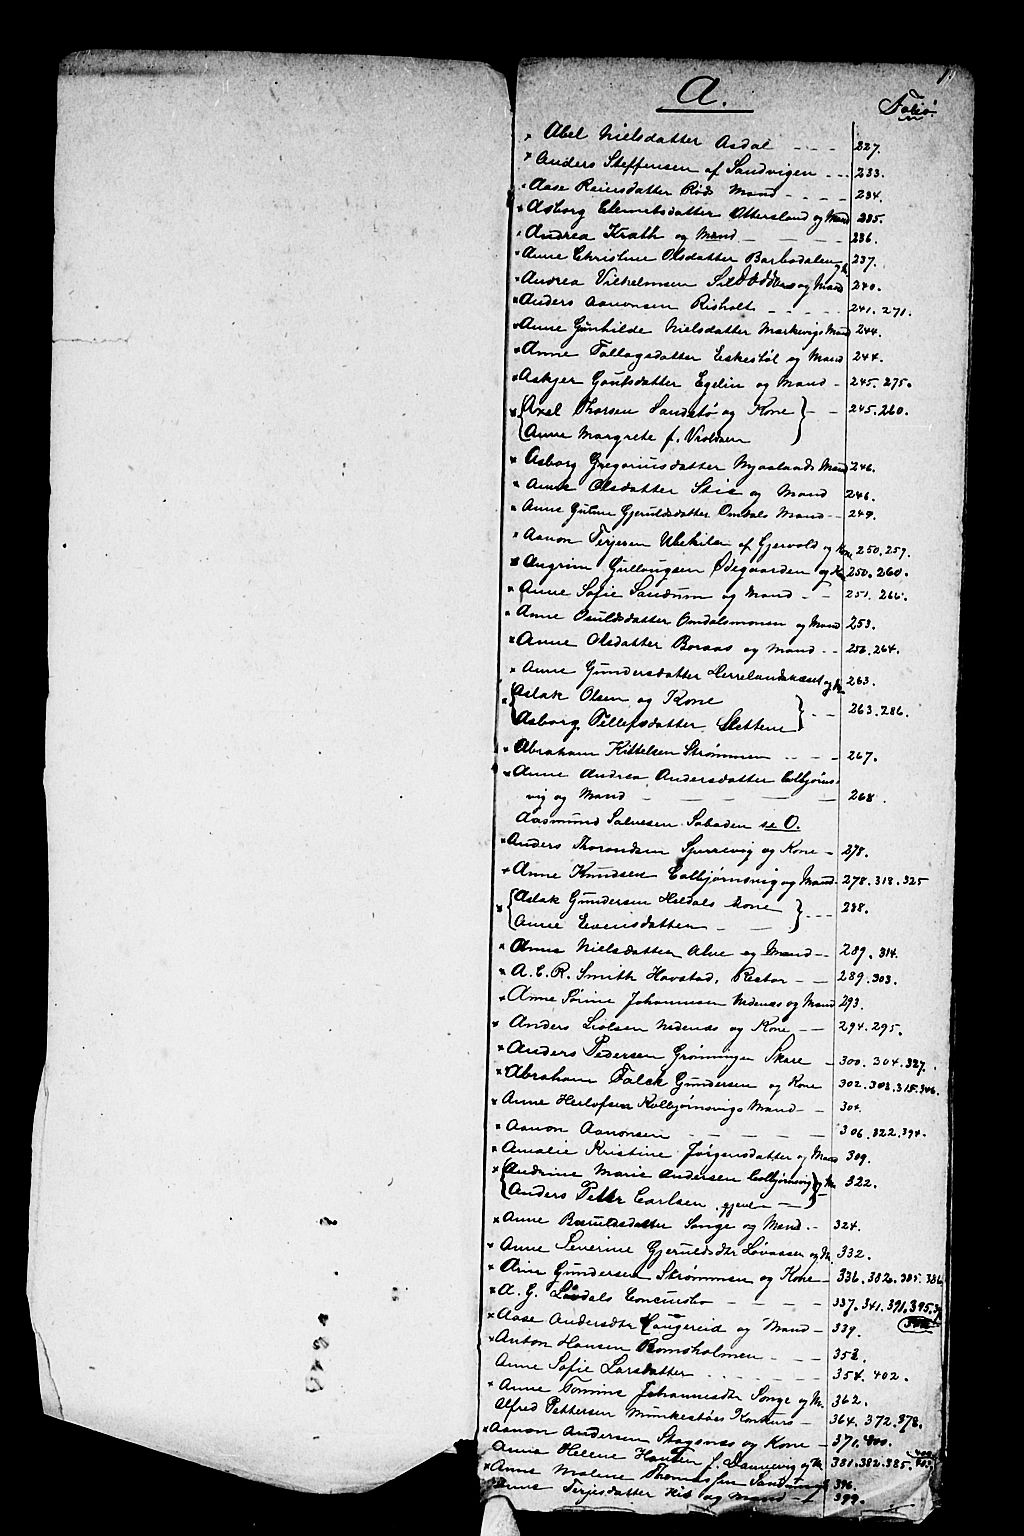 1.
A.
Folio
× Abel Nielsdatter Asdal - - - 227.
× Anders Steffensen af Sandvigen - - - 233.
× Aase Reiersdatter Røds Mand - - - 234.
× Asborg Clemetsdatter Ottersland og Mand 235.
× Andrea Krath og Mand - - - 236.
× Anne Christine Olsdatter Barbodalen og M. 237.
× Andrea Vilhelmsen og Mand 240.
× Anders Aanonsen Risholt - - - 241. 271.
× Anne Gunhilde Nielsdatter Markevigs Mand 244.
× Anne Tallagsdatter Eskestøl og Mand 244.
× Askjer Gautsdatter Egelin og Mand - 245. 275.
× Axel Thorsen Sandstø og Kone - - 245. 260.
Anne Margrete f.
× Asborg Gregoriusdatter Mand 246.
× Anne Olsdatter Stie og Mand 246.
× Anne Gjeruldsdatter Omdals Mand - - 249.
× Aanon Terjesen af Gjervold og Kone 250. 259.
× Angrim Gullougsen Ødegaarden og K. 250. 260.
× Anne Sofie Sandum og Mand - - 251. 266.
× Anne Osuldsdatter Omdalsmoen og Mand 253.
× Anne Olsdatter Boraas og Mand - - 256. 264.
× Anne Gundersdatter og M. 263.
× Aslak Olsen og Kone
Asborg Tellefsdatter Slettene - - 263. 286.
× Abraham Kittelsen Strømmen - - - 267.
× Anne Andrea Andersdatter Colbjørns-
vig og Mand - - - 268.
Aasmund Salvesen Sabaden se O.
× Anders Thorondsen Spærrevig og Kone - 278.
× Anne Knudsen Colbjørnsvig og Mand - 278. 318. 325
× Aslak Gundersen Heldals Kone
Anne Evensdatter - - - 288.
× Anne Nielsdatter Alve og Mand - - 289. 314.
× A. C. R. Smith Havstad, Rector - - 289. 303.
× Anne Sørine Johannesen Nedenæs og Mand 293.
× Anders Liolsen Nedenæs og Kone - - 294. 295.
× Anders Pedersen Grønningen Skare - 300. 304. 327.
× Abraham Falck Gundersen og Kone 302. 308. 315. 346.
× Anne Herlofsen Kolbjørnsvigs Mand - - 304.
× Aanon Aanonsen - - - 306. 322. 394.
× Amalie Kristine Jørgensdatter og Mand 309.
× Andrine Marie Andersen Colbjørnsvig og M.
Anders Petter Carlsen - - 322.
× Anne Bæruldsdatter Songe og Mand - - 324.
× Anne Severine Gjeruldsdtr Løvaasen og M. 332.
× Arne Gundersen Strømmen og Kone - 336. 382. 385. 386.
× A. G. Løvdals Concursbo - - - 337. 341. 391. 395.
× Aase Andersdtr Haugereid og Mand - 339.
× Anton Hansen Romsholmen - - - 353.
Anne Sofie Larsdatter - - - 354. 402.
× Anne Tomine Johannesdtr Songe og M. 362.
Alfred Pettersen Munkestøes Konkurs - 364. 372. 378.
× Aanon Andersen Skagsnæs og Kone - 371. 400.
Anna Helene Hansen f. Dannevig og M. 381. 382. 385.
× Anne Malene Thomassen 396.
× Anne Terjesdatter og Mand - 399.